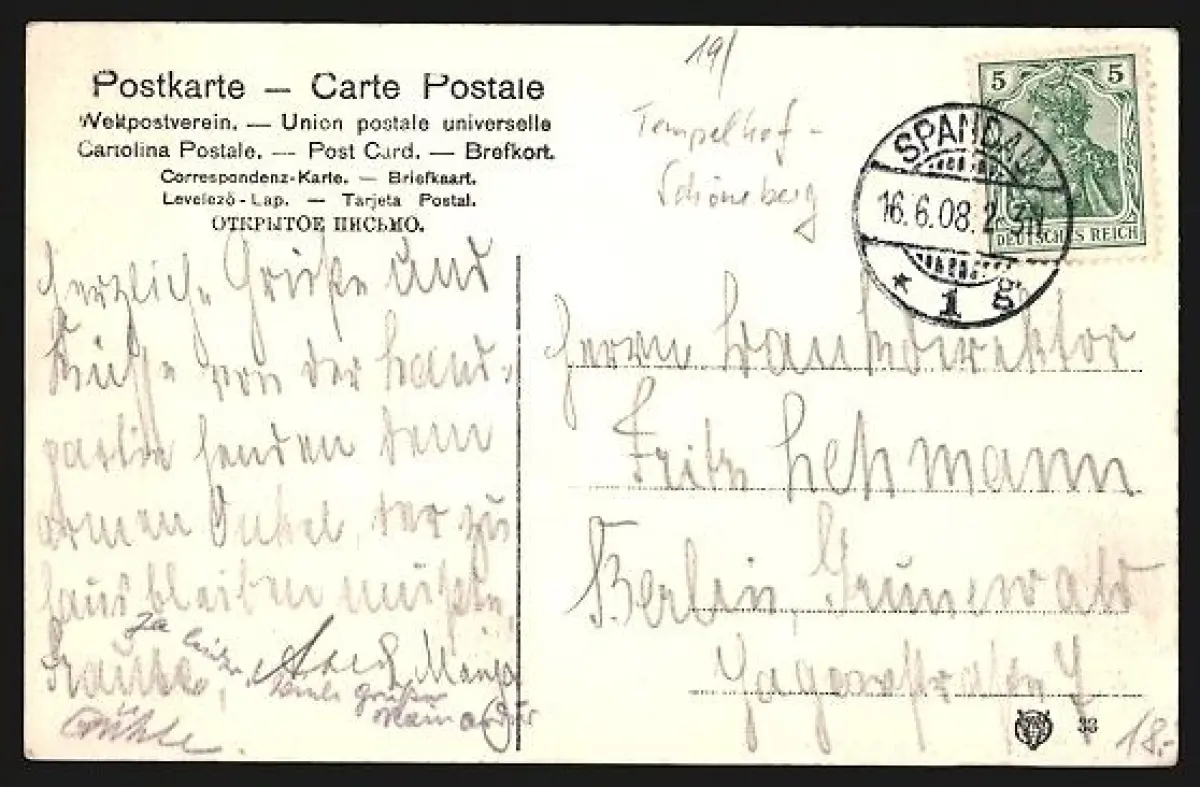 Postkarte — Carte Postale
Weltpostverein. — Union postale universelle
Cartolina Postale. — Post Card. — Brefkort.
Correspondenz-Karte. — Briefkaart.
Levelező-Lap. — Tarjeta Postal.
ОТКРЫТОЕ ПИСЬМО.
19/
Tempelhof-
Schöneberg
5 5
DEUTSCHES REICH
SPANDAU
16.6.08. 2-3N
* 1 g
Herzliche Grüße und
Küsse von der Land-
partie senden dem
armen Onkel, der zu
haus bleiben mußte,
Herrn Bankdirektor
Fritz Lehmann
Berlin, Grunewald
33
18.-